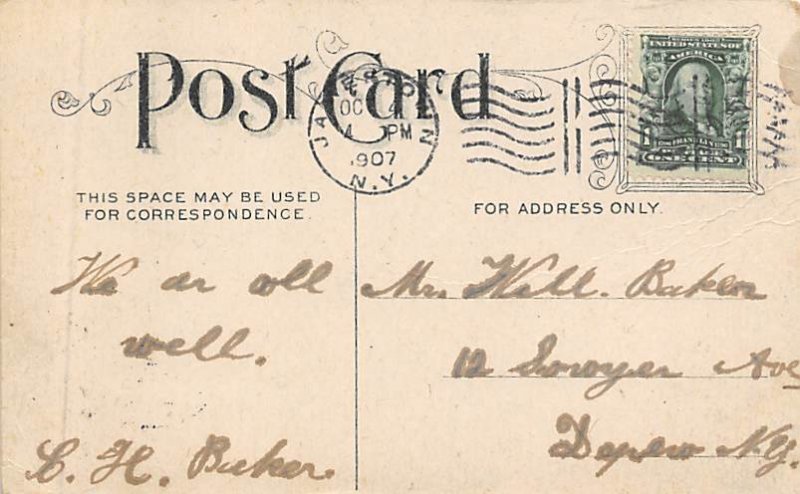 Post Card
JAMESTOWN
OCT
4 PM
1907
N.Y.
SERIES 1902
UNITED STATES OF
AMERICA
1 FRANKLIN 1
ONE CENT
THIS SPACE MAY BE USED
FOR CORRESPONDENCE.
FOR ADDRESS ONLY.
We ar all
well.
C. H. Baker.
Mr. Will. Baker
12 Sawyer Ave
Depew N.Y.